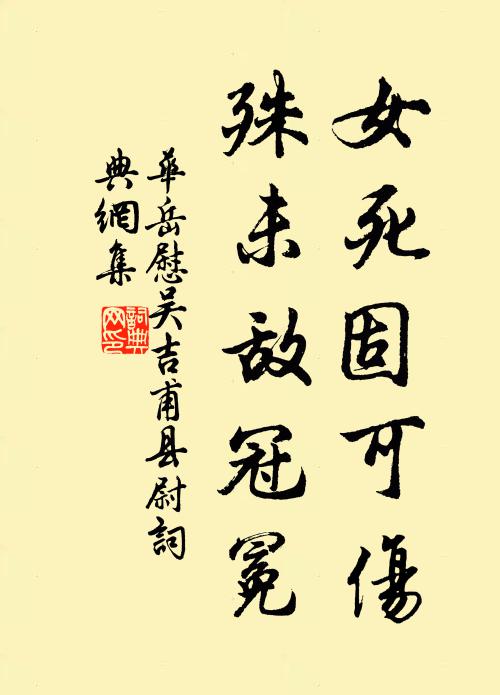 女死固可傷
殊未敵冠冕
華岳慰吴吉甫县尉詞
典網集
詞典
网印